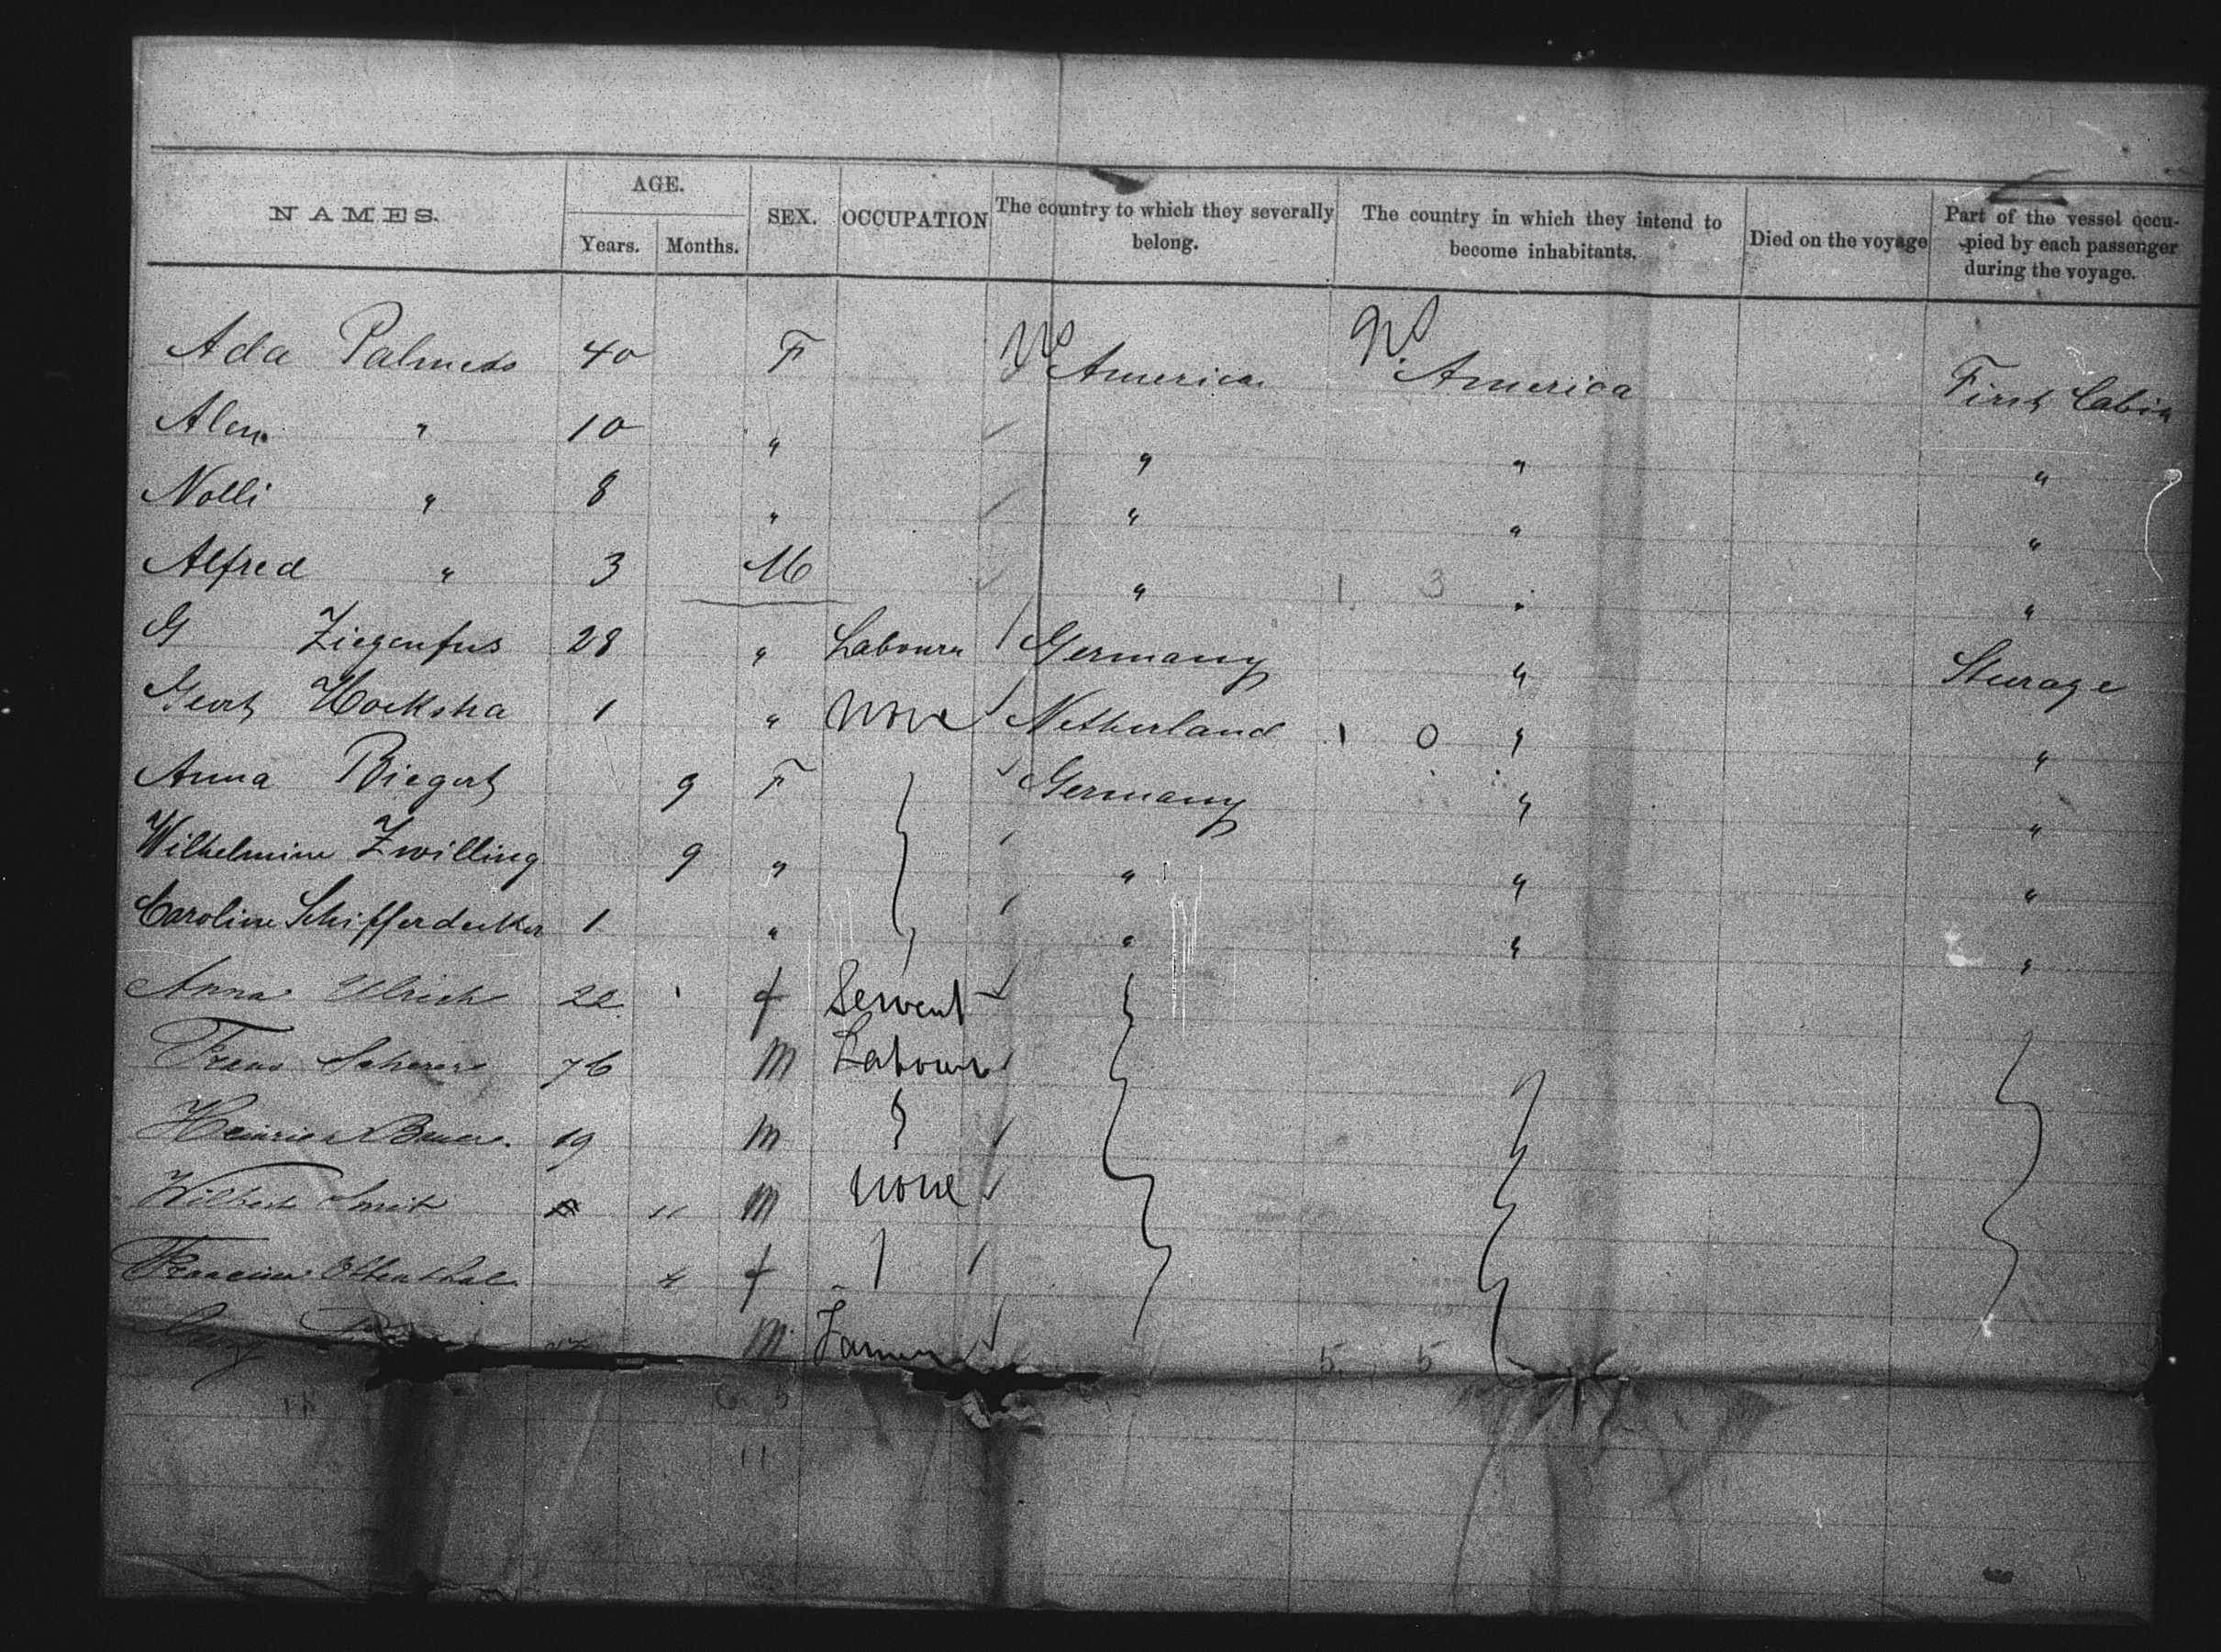 NAMES. AGE. Years. Months. SEX. OCCUPATION The country to which they severally belong. The country in which they intend to become inhabitants. Died on the voyage Part of the vessel occupied by each passenger during the voyage.
Ada 40 F No America No America First Cabin
" 10 " " " "
Nolli " 8 " " " "
Alfred " 3 M " 1. 3 " "
G Ziegenfus 28 " Labourer Germany " Steerage
Hoekstra 1 " None Netherland 1 0 " "
Anna Biegert 9 F Germany " "
Wilhelmine Zwilling 9 " " " "
Caroline Schifferdecker 1 " " " "
Anna Ulrich 22 f Servent
Scherer 76 m Labourer
Heinrich 19 m
Smit 11 m none
f
m Farmer 5. 5
11 6. 5
11